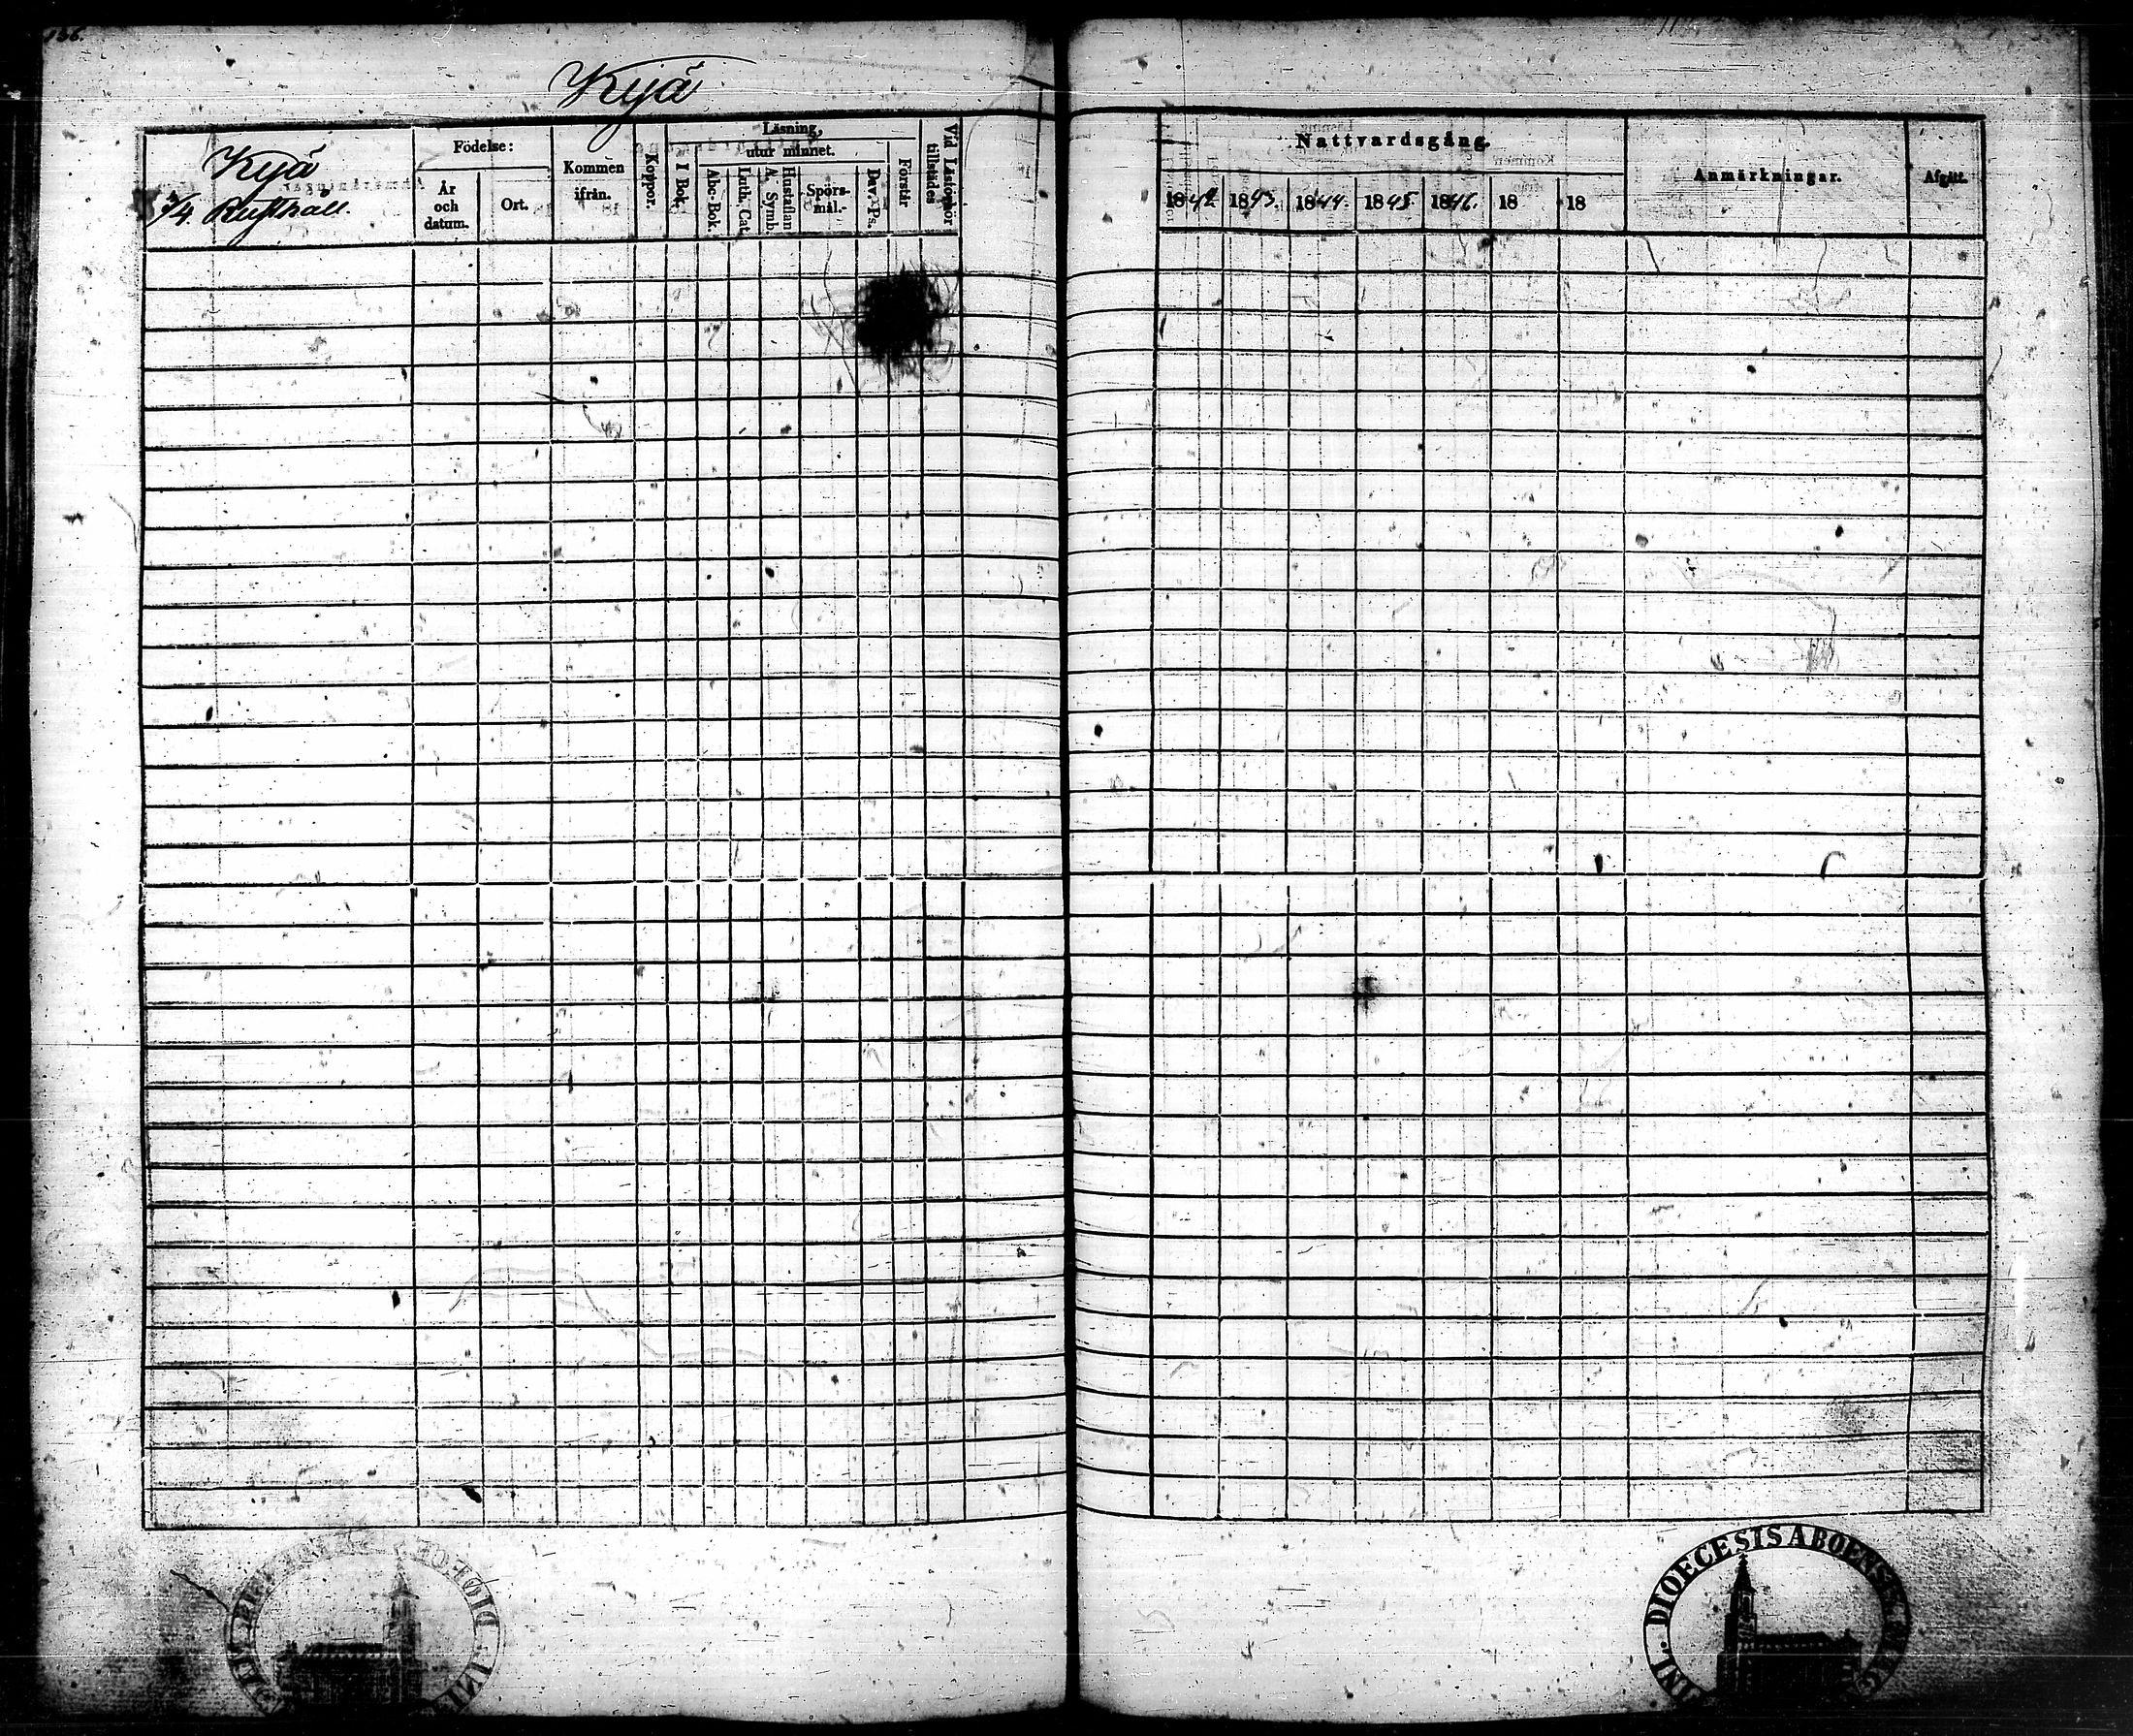 136.
Kyä
Kyä
3/4 Rusthåll.
Födelse:
År och datum.
Ort.
Kommen ifrån.
Koppor.
Läsning,
utur minnet.
I Bok.
Abc-Bok.
Luth. Cat.
A. Symb.
Hustaflan
Spörs-mål.
Dav. Ps.
Förstår
Vid Läsförhör tillstädes
Nattvardsgång.
1842 1843. 1844. 1845. 1846. 18 18
Anmärkningar.
Afgått.
DIOECESIS ABOENSIS